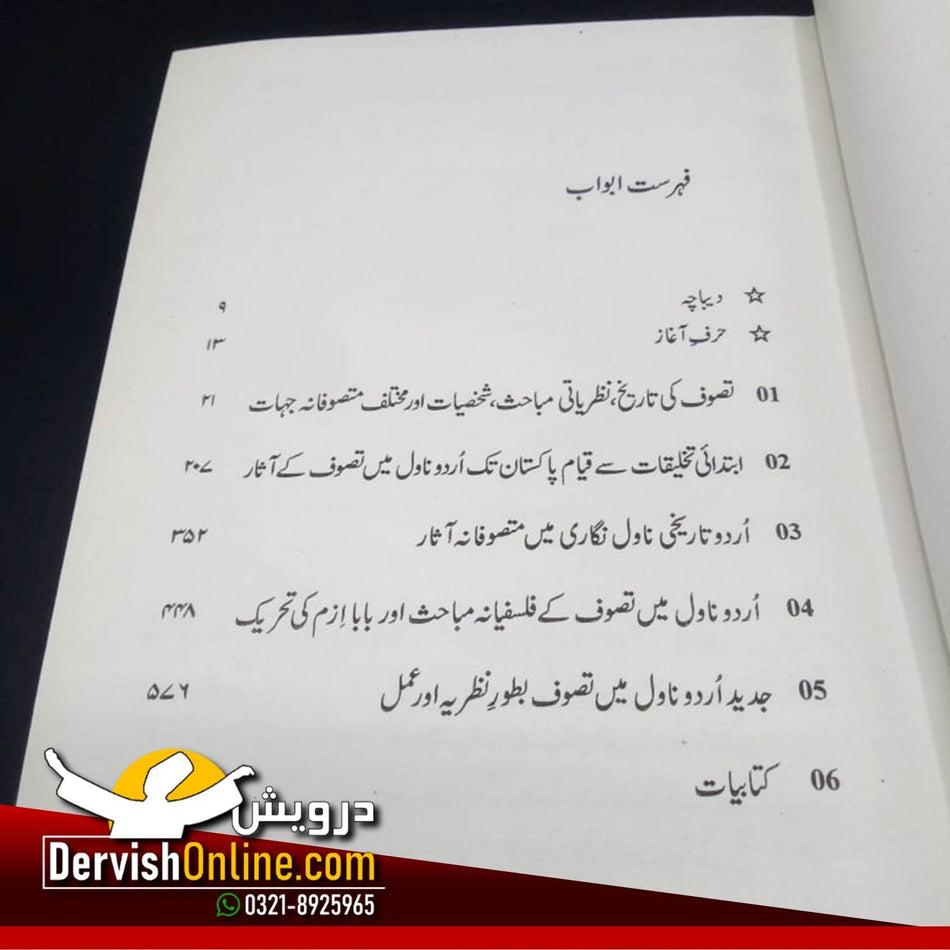 فہرست ابواب
☆ دیباچہ ۹
☆ حرفِ آغاز ۱۳
01 تصوف کی تاریخ، نظریاتی مباحث، شخصیات اور مختلف متصوفانہ جہات ۲۱
02 ابتدائی تخلیقات سے قیام پاکستان تک اُردو ناول میں تصوف کے آثار ۲۰۷
03 اُردو تاریخی ناول نگاری میں متصوفانہ آثار ۳۵۲
04 اُردو ناول میں تصوف کے فلسفیانہ مباحث اور بابا اِزم کی تحریک ۴۴۸
05 جدید اُردو ناول میں تصوف بطورِ نظریہ اور عمل ۵۷۶
06 کتابیات
درویش
DervishOnline.com
0321-8925965